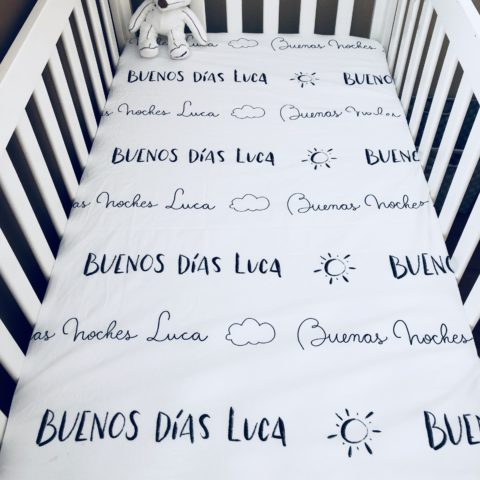 Luca Buenas Noches
BUENOS DÍAS LUCA BUENO
as Noches Luca Buenas Noches
BUENOS DÍAS LUCA BUENO
as Noches Luca Buenas Noches
BUENOS DÍAS LUCA BUENO
as Noches Luca Buenas Noches
BUENOS DÍAS LUCA BUE